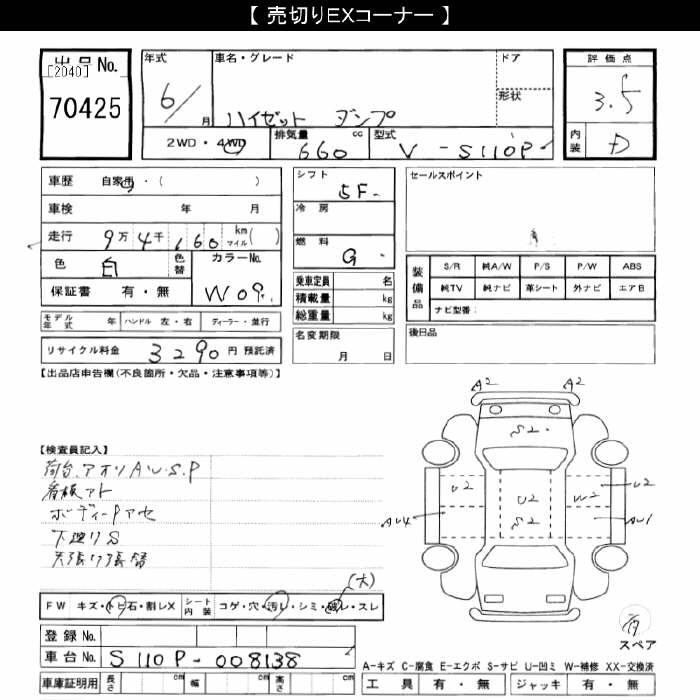 【 売切りEXコーナー 】
出品No.
[2040]
70425
年式
6/
月
車名・グレード
ハイゼット ダンプ
ドア
形状
評価点
3.5
内装
D
2WD・4WD
排気量 cc
660
型式
V-S110P
車歴 自家用・( )
車検 年 月
走行 9万4千160 km マイル( )
色 白
色替
カラーNo.
W09
保証書 有・無
モデル年式 年
ハンドル 左・右
ディーラー・並行
リサイクル料金 3290 円 預託済
シフト
5F
冷房
燃料
G
乗車定員 名
積載量 kg
総重量 kg
名変期限
月 日
セールスポイント
装備品
S/R 純A/W P/S P/W ABS
純TV 純ナビ 革シート 外ナビ エアB
ナビ型番:
後日品
【出品店申告欄(不良箇所・欠品・注意事項等)】
【検査員記入】
荷台、アオリAU.S.P
看板アト
ボディーPアセ
下廻りS
天張り張替
(大)
A2 A2
S2
U2 U2 W2 U2
S2
AU4 AU1
FW キズ・トビ石・割レX
シート内装 コゲ・穴・汚レ・シミ・破レ・スレ
登録No.
車台No. S110P-008138
車庫証明用 長さ cm 幅 cm 高さ cm
有
スペア
A-キズ C-腐食 E-エクボ S-サビ U-凹ミ W-補修 XX-交換済
工具 有・無 ジャッキ 有・無